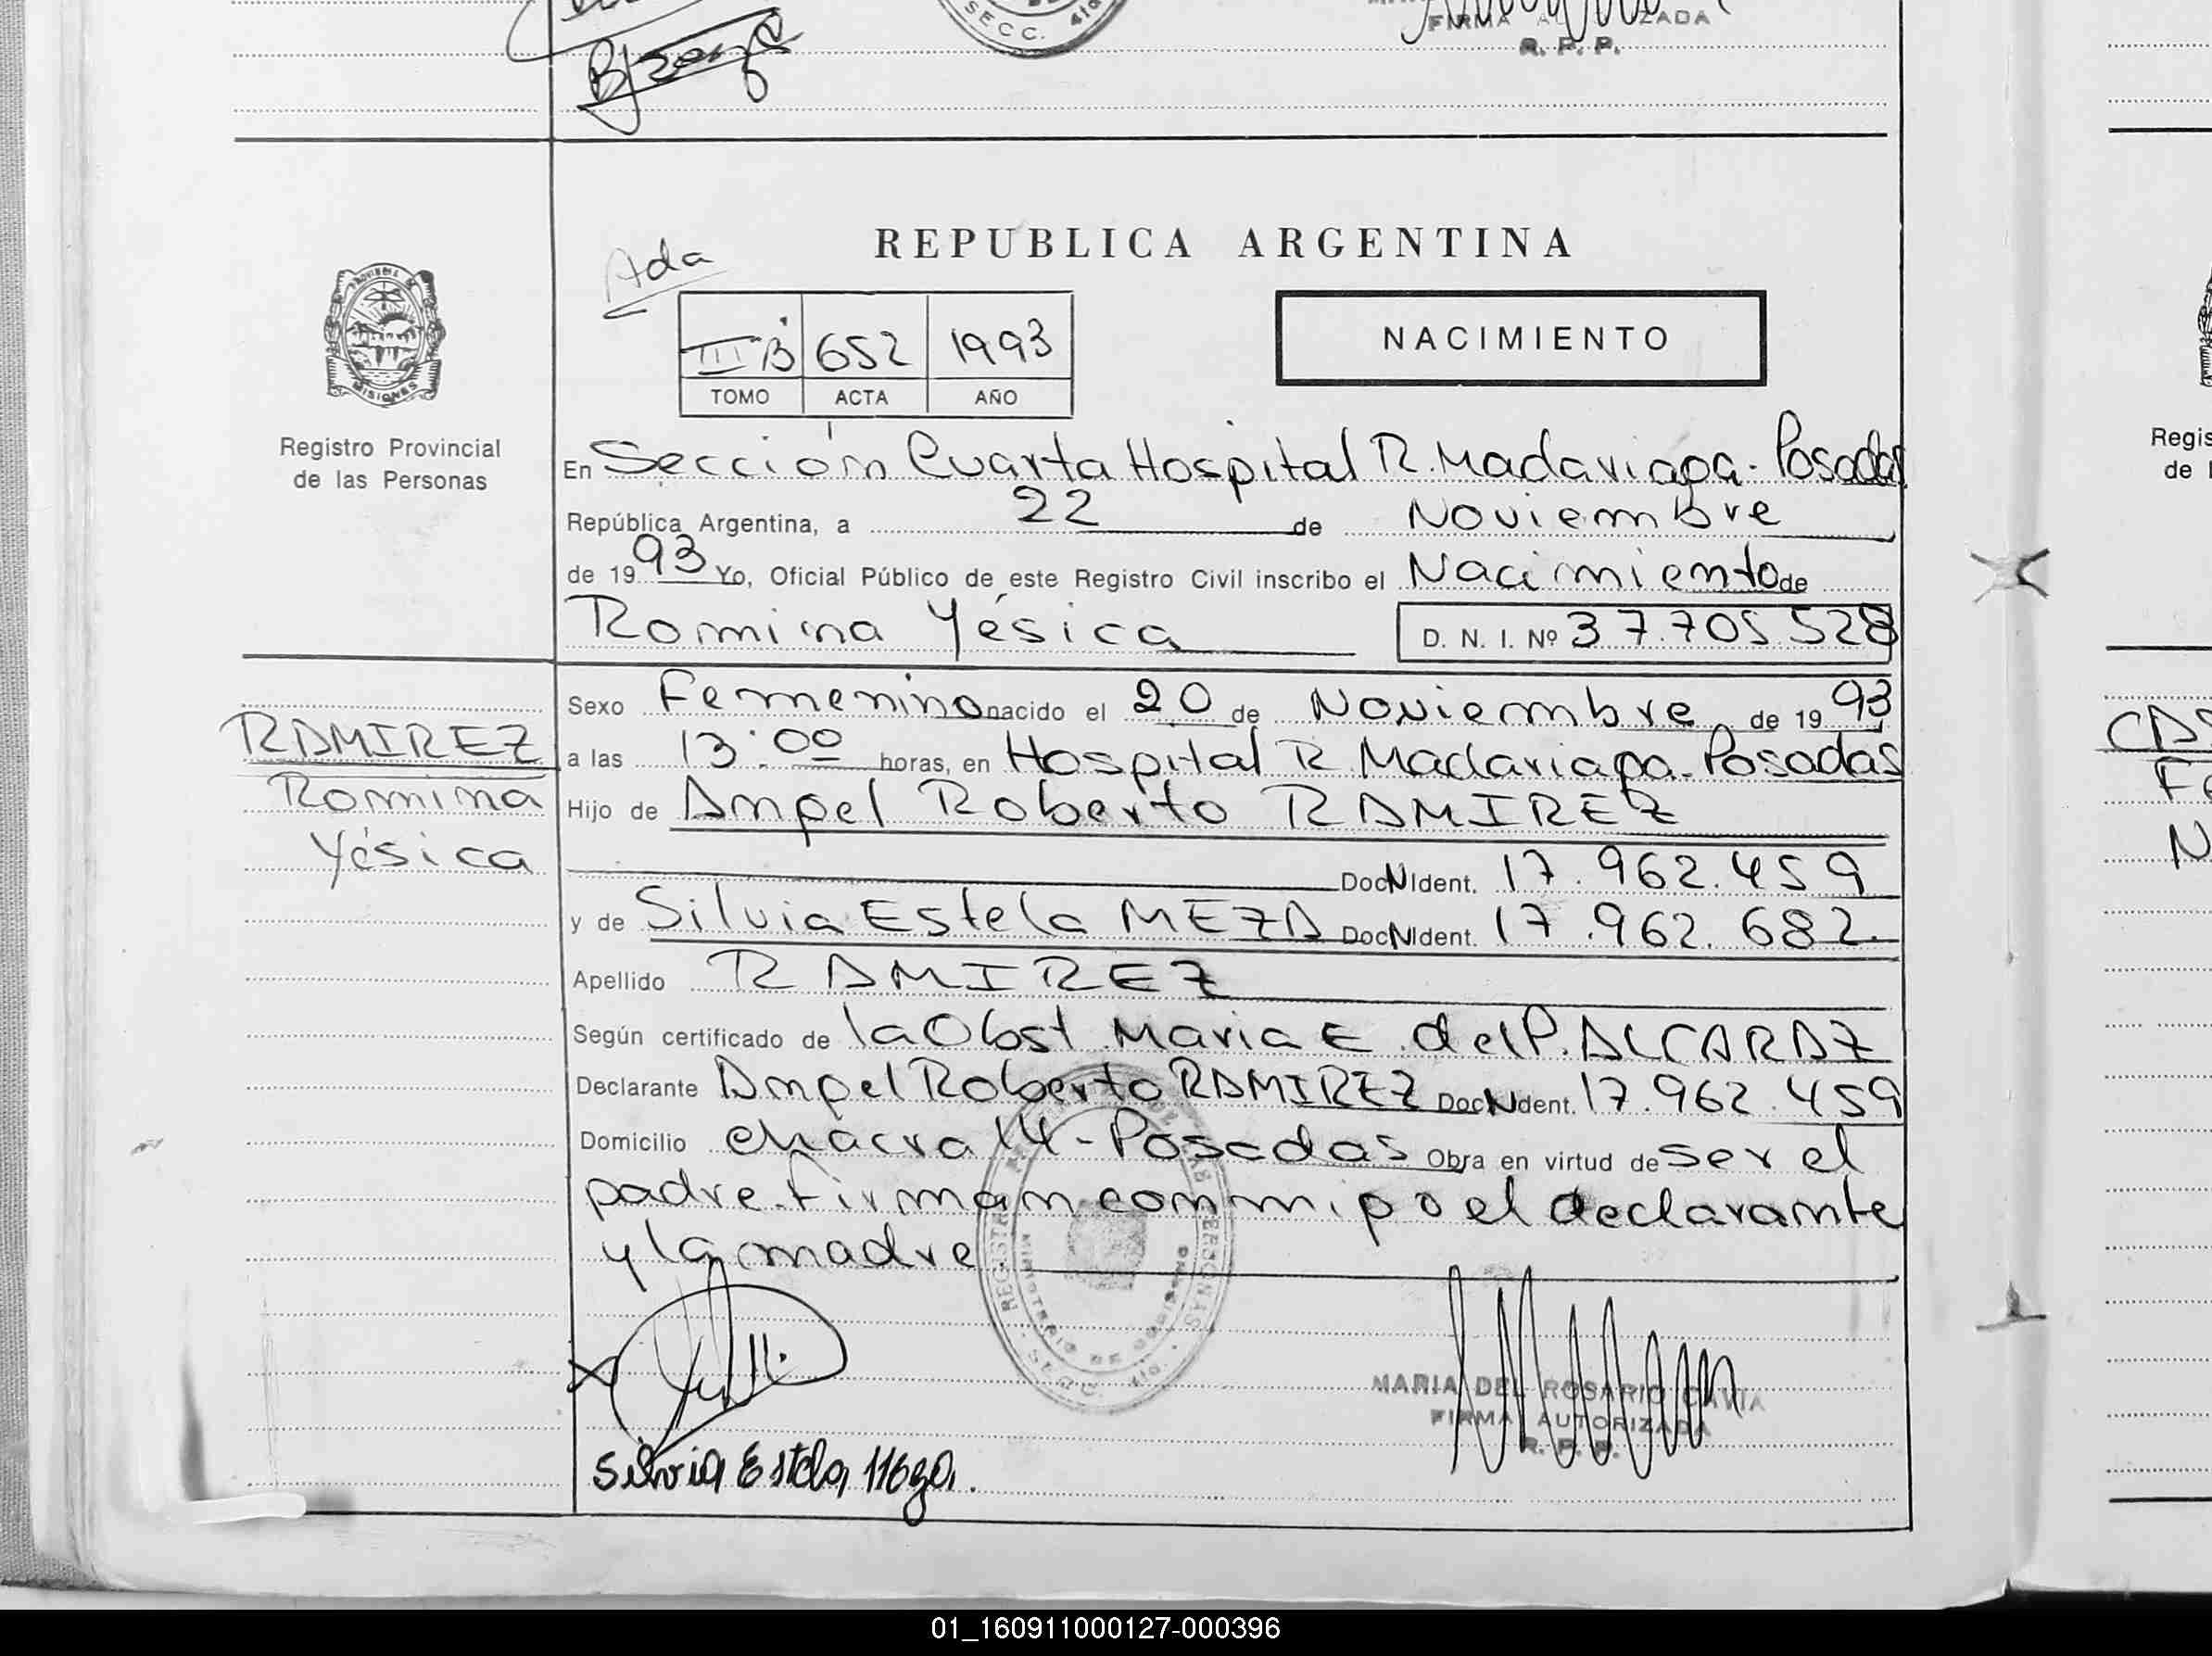 SECC. 4ta
FIRMA AUTORIZADA
R. P. P.
REPUBLICA ARGENTINA
Ada
III B 652 1993
TOMO ACTA AÑO
NACIMIENTO
PROVINCIA
MISIONES
Registro Provincial
de las Personas
En Sección Cuarta Hospital R. Madariaga - Posadas
República Argentina, a 22 de Noviembre
de 1993 Yo, Oficial Público de este Registro Civil inscribo el Nacimiento de
Romina Yésica D. N. I. Nº 37.705.528
RAMIREZ
Romina
Yésica
Sexo Femenino nacido el 20 de Noviembre de 1993
a las 13:00 horas, en Hospital R Madariaga - Posadas
Hijo de Angel Roberto RAMIREZ
Doc N Ident. 17.962.459
y de Silvia Estela MEZA Doc N Ident. 17.962.682.
Apellido RAMIREZ
Según certificado de la Obst Maria E del P. ALCARAZ
Declarante Angel Roberto RAMIREZ Doc N Ident. 17.962.459
Domicilio chacra 14 - Posadas Obra en virtud de ser el
padre. Firman conmigo el declarante
y la madre
MINISTERIO DE GOBIERNO
SECC. 4ta.
MARIA DEL ROSARIO CAVIA
FIRMA AUTORIZADA
R. P. P.
Silvia Estela Meza.
Regis
de l
01_160911000127-000396